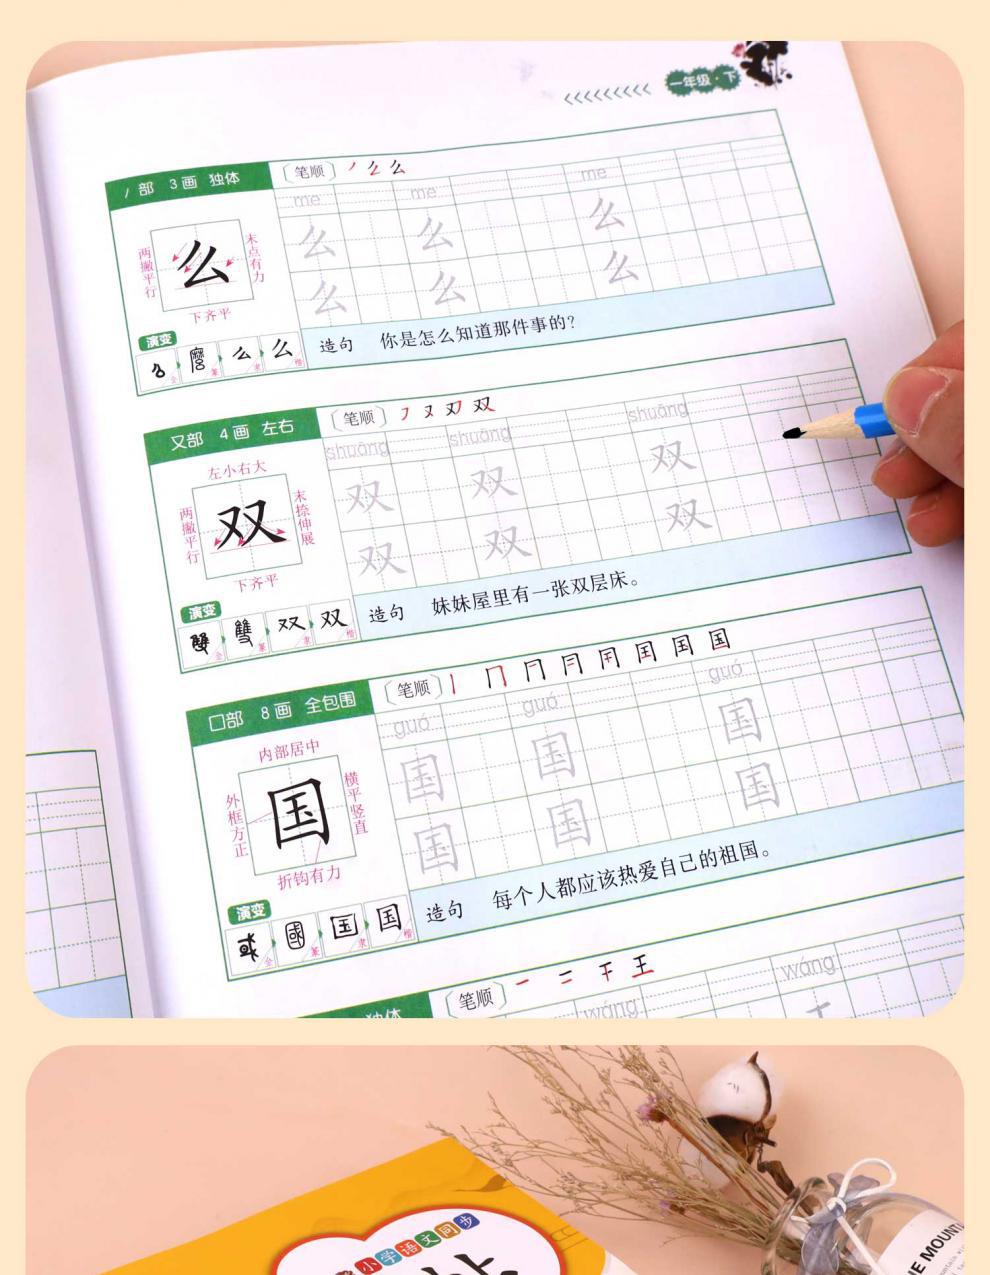 一年级·下
丿部 3画 独体
笔顺
me me me
么 么 么
么 么 么
两撇平行
么
末点有力
下齐平
演变
金 篆 隶 楷
造句 你是怎么知道那件事的？
又部 4画 左右
笔顺
shuāng shuāng shuāng
双 双 双
双 双 双
左小右大
两撇平行
双
末捺伸展
下齐平
演变
雙 双 双
金 篆 隶 楷
造句 妹妹屋里有一张双层床。
囗部 8画 全包围
笔顺
guó guó guó
国 国 国
国 国 国
内部居中
外框方正
国
横平竖直
折钩有力
演变
或 國 国 国
金 篆 隶 楷
造句 每个人都应该热爱自己的祖国。
独体
笔顺 一 二 干 王
wáng wáng
小学语文同步
THE MOUNT